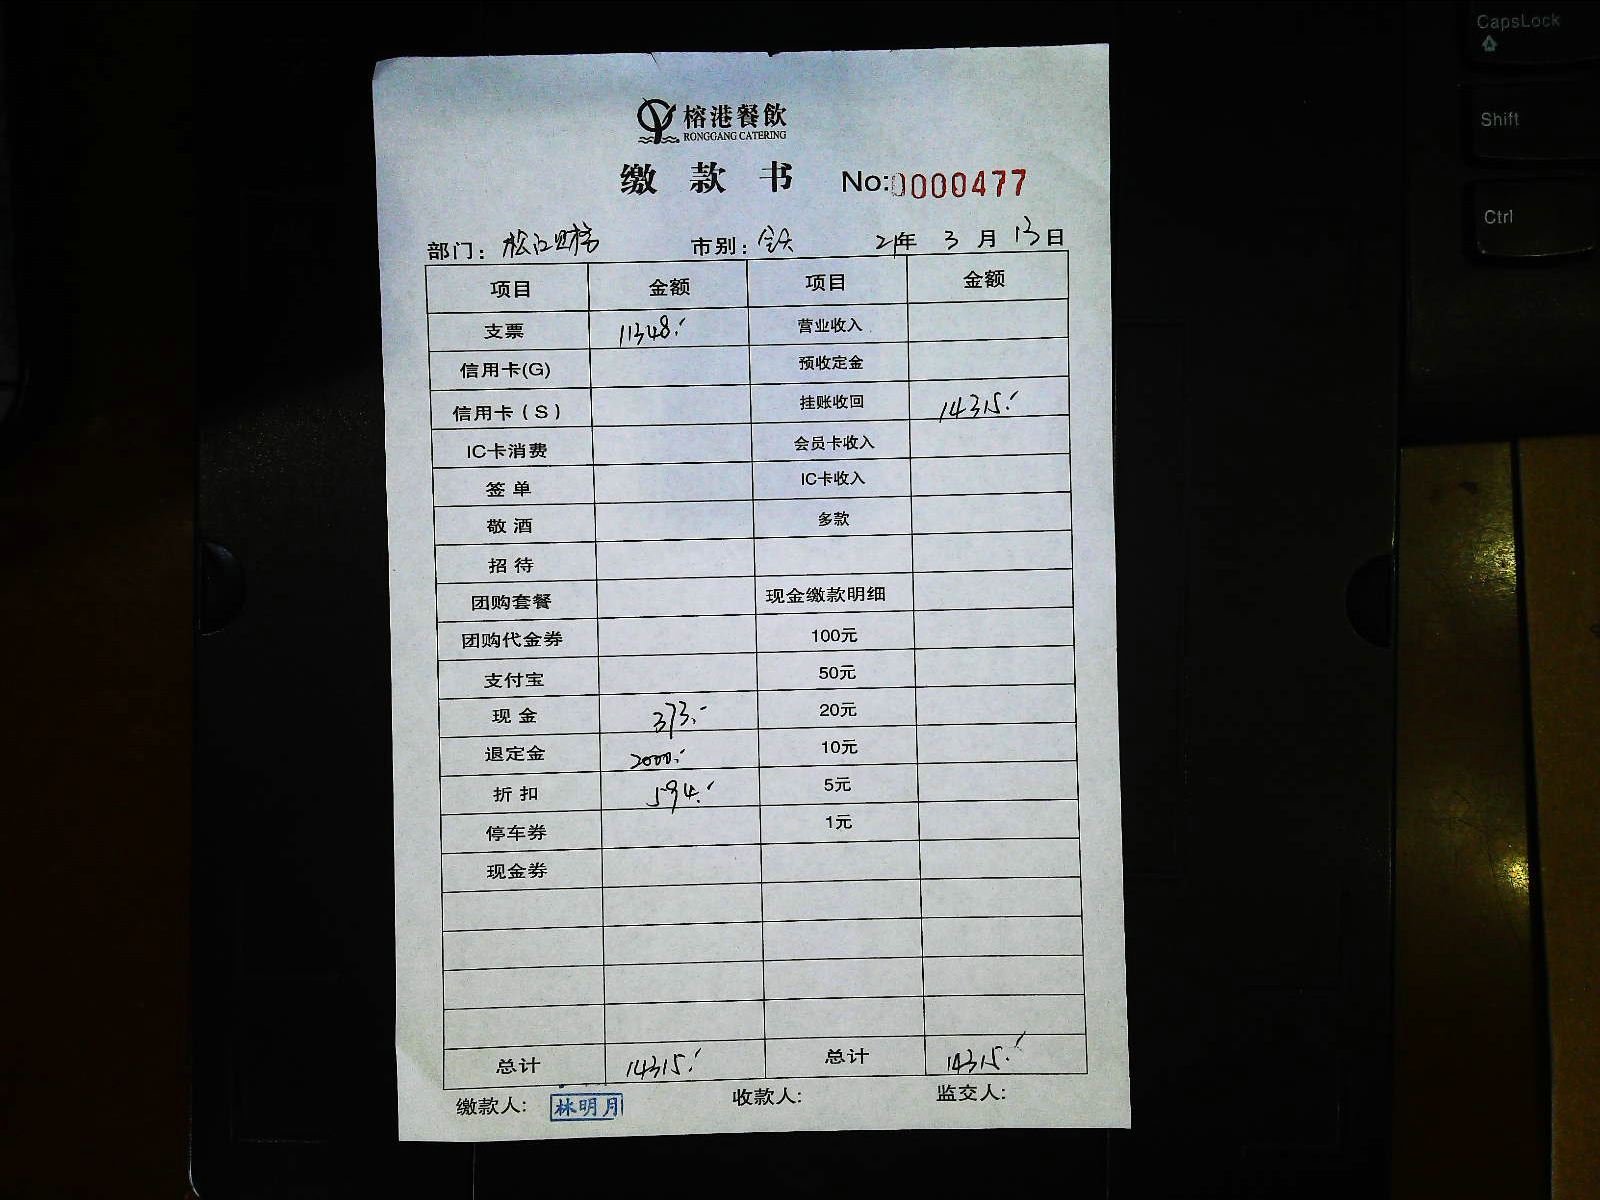 榕港餐飲
RONGGANG CATERING
缴款书 No:0000477
部门: 松江财务 市别: 全天 21年 3月 13日
项目 金额 项目 金额
支票 11348.- 营业收入
信用卡(G) 预收定金
信用卡(S) 挂账收回 14315.-
IC卡消费 会员卡收入
签单 IC卡收入
敬酒 多款
招待
团购套餐 现金缴款明细
团购代金券 100元
支付宝 50元
现金 373.- 20元
退定金 2000.- 10元
折扣 594.- 5元
停车券 1元
现金券
总计 14315.- 总计 14315.-
缴款人: 林明月 收款人: 监交人:
CapsLock
Shift
Ctrl